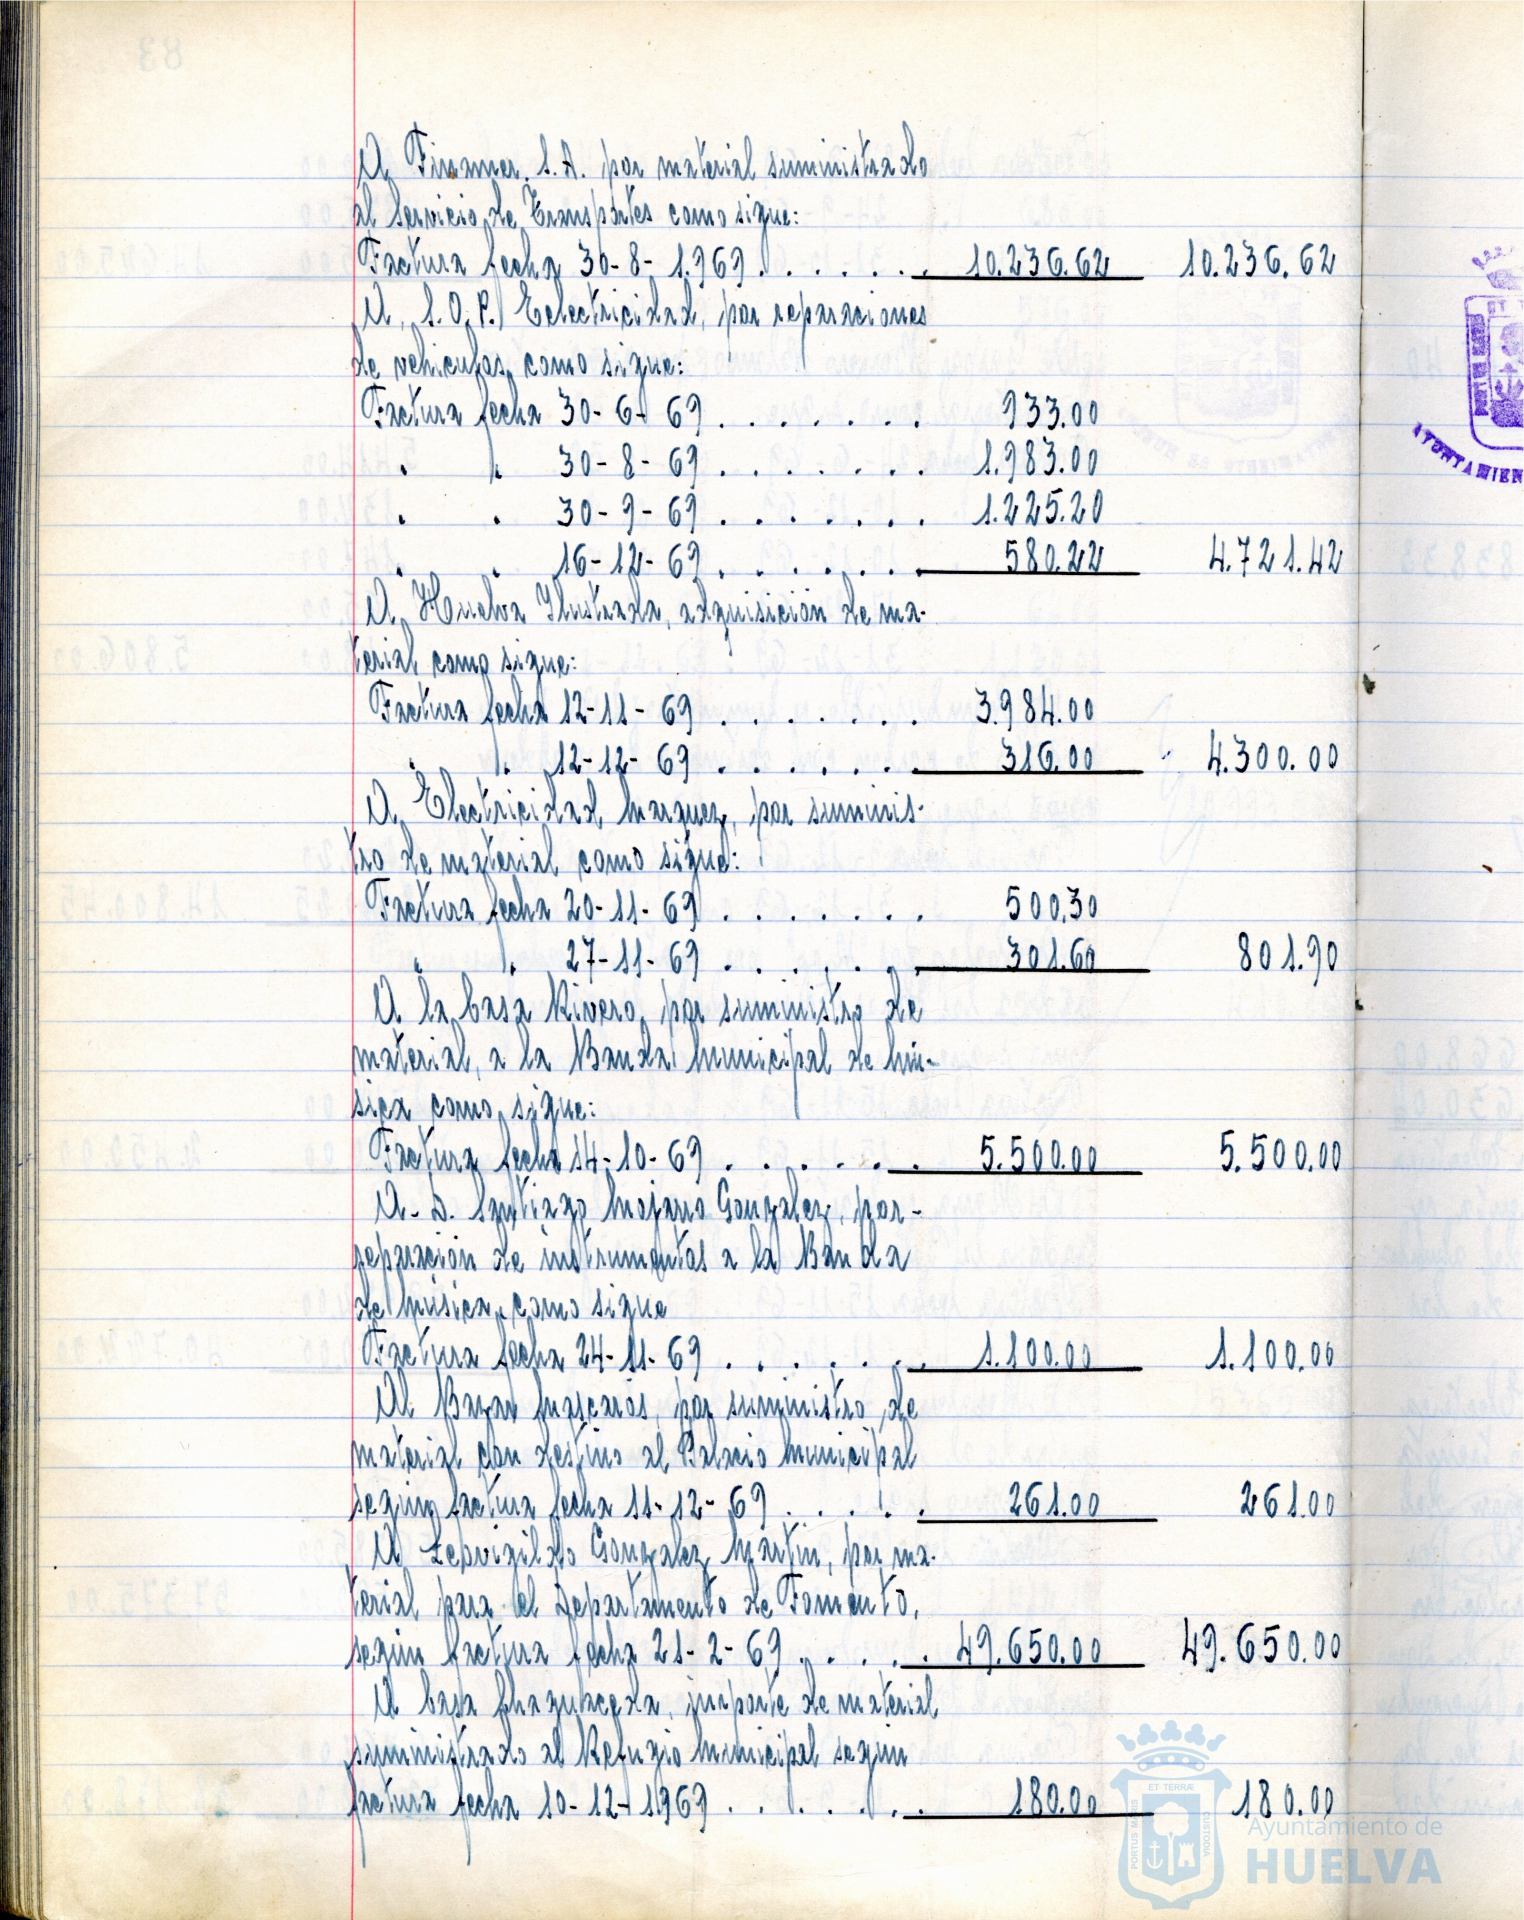 A Finamer. S.A. por material suministrado
al Servicio de Transportes como sigue:
Factura fecha 30-8-1.969 . . . . . . 10.236.62 10.236.62
A, S.O.P. Eelectricidad, por reparaciones
de vehiculos, como sigue:
Factura fecha 30-6-69 . . . . . . . 933.00
" " 30-8-69 . . . . . . . 1.983.00
" " 30-9-69 . . . . . . . 1.225.20
" " 16-12-69 . . . . . . . 580.22 4.721.42
A, Huelva Ilustrada, adquisición de ma-
terial como sigue:
Factura fecha 12-11-69 . . . . . . . 3.984.00
" " 12-12-69 . . . . . . 316.00 4.300.00
A, Electricidad Marquez, por suminis-
tro de material como sigue:
Factura fecha 20-11-69 . . . . . . . 500,30
" " 27-11-69 . . . . . . 301.60 801.90
A la Casa Rivero, por suministro de
material, a la Banda Municipal de Mú-
sica como sigue:
Factura fecha 14-10-69 . . . . . . 5.500.00 5.500.00
A- D. Santiago Mojarro Gonzalez, por-
reparación de instrumentos a la Banda
de Música, como sigue
Factura fecha 24-11-69 . . . . . . 1.100.00 1.100.00
Al Bazar Mascarós, por suministro de
material con destino al Palacio Municipal
según factura fecha 11-12-69 . . . . . 261.00 261.00
A Leovigildo Gonzalez Martín, por ma-
terial para el Departamento de Fomento,
según factura fecha 21-2-69 . . . . . 49.650.00 49.650.00
A Casa importe de material
suministrado al Refugio Municipal según
factura fecha 10-12-1969 . . . . . . 180.00 180.00
ET TERRÆ
PORTUS MARIS
CUSTODIA
Ayuntamiento de
HUELVA